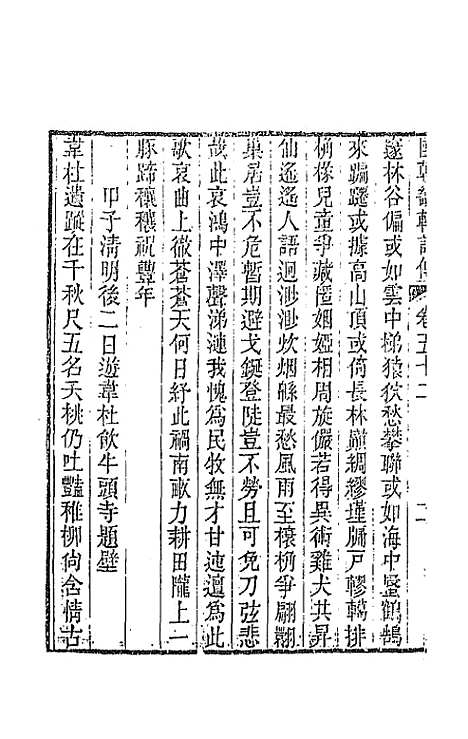 國朝畿輔詩傳　卷五十二
邃林谷偏或如雲中梯猿狖愁攀聯或如海中蜃鶴鵠
來蹁躚或據高山頂或倚長林巔綢繆墐牖戸轇轕排
椽兒童爭藏匿姻婭相周旋儼若得異術雞犬共昇
仙遙遙人語迴渺渺炊烟緜最愁風雨至榱桷爭翩翾
巢居豈不危暫期避戈鋋登陡豈不勞且可免刀弦悲
哉此哀鴻中澤聲涕漣我愧為民牧無才甘迍邅為此
歌哀曲上徹蒼蒼天何日紓此禍南畝力耕田隴上一
豚蹄穰穰祝豐年
甲子淸明後二日遊韋杜飲牛頭寺題壁
韋杜遺蹤在千秋尺五名夭桃仍吐豔稚柳尙含情古